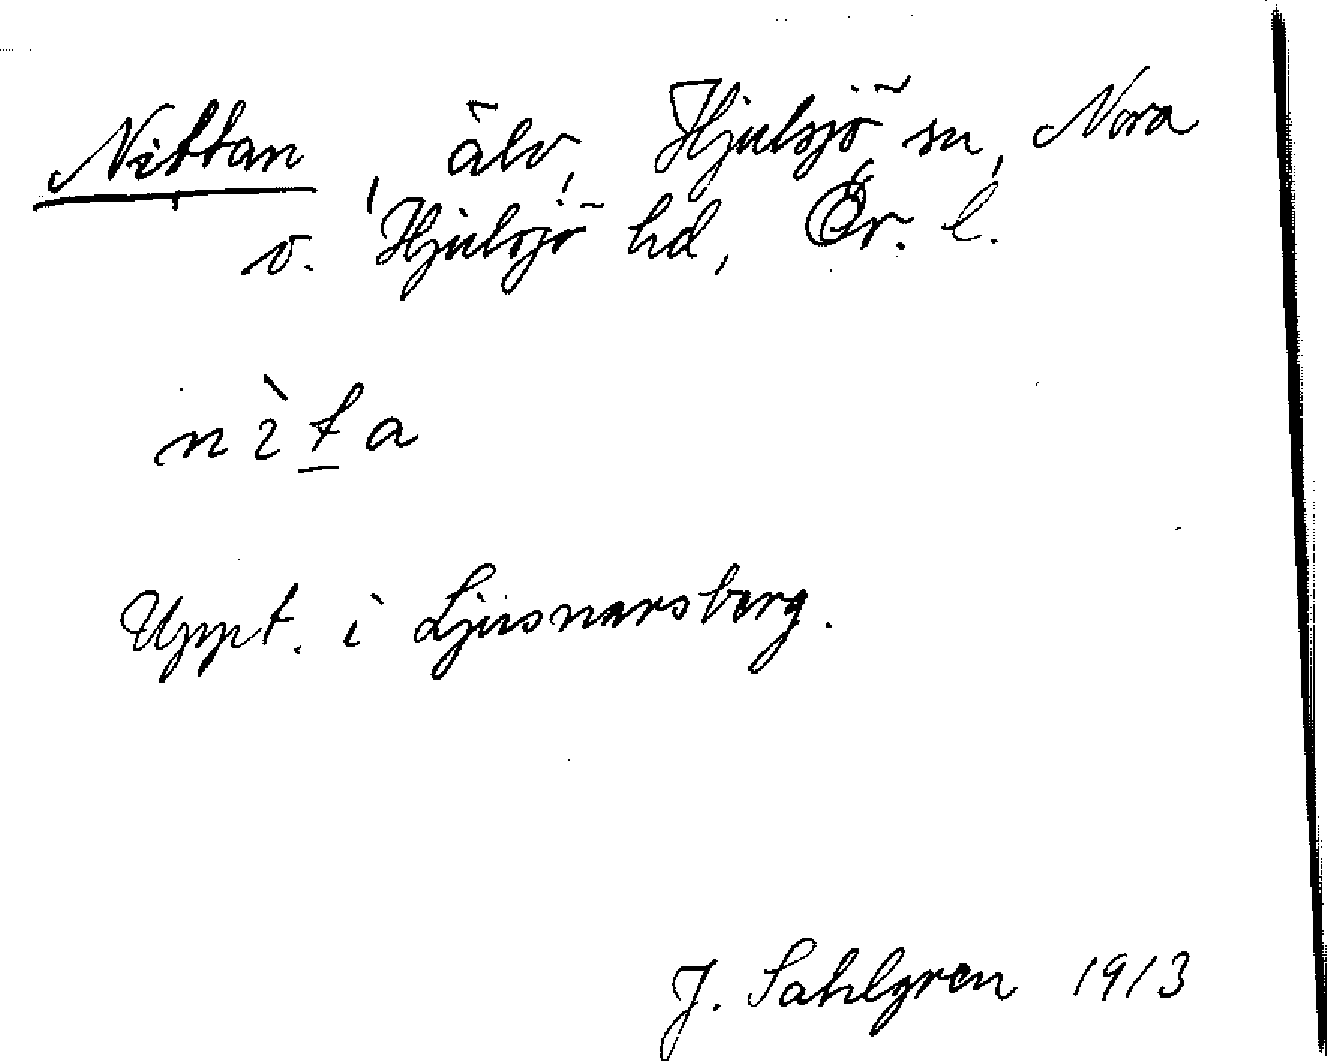 Nittan, älv, Hjulsjö sn, Nora
o. Hjulsjö hd, Ör. l.
nìta
Uppt. i Ljusnarsberg.
J. Sahlgren 1913